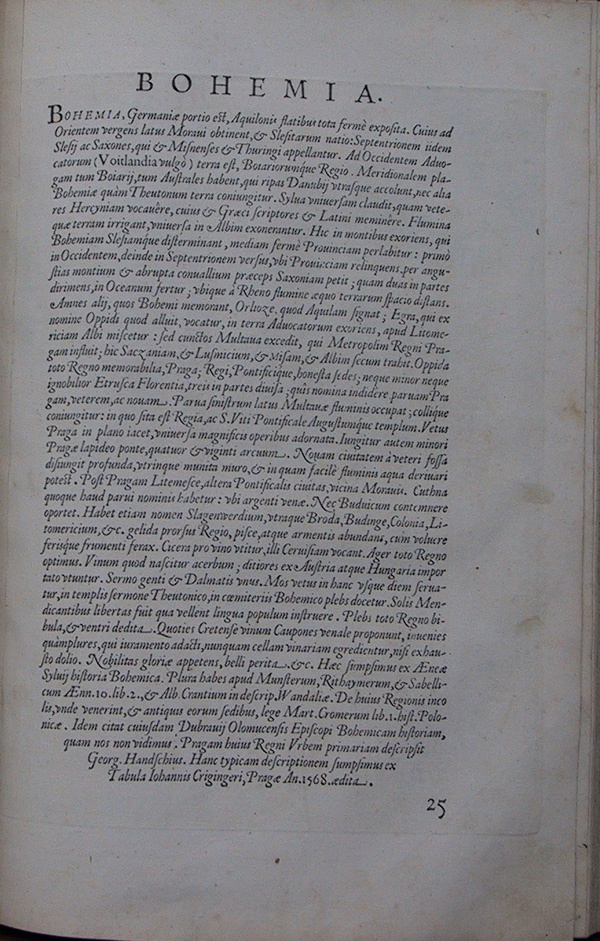 BOHEMIA.
BOHEMIA, Germaniæ portio est, Aquilonis flatibus tota fermè exposita. Cuius ad
Orientem vergens latus Moraui obtinent, & Slesitarum natio: Septentrionem iidem
Slesij ac Saxones, qui & Misnenses & Thuringi appellantur. Ad Occidentem Aduo-
catorum (Voitlandia vulgò) terra est, Boiariorumque Regio. Meridionalem pla-
gam tum Boiarij, tum Australes habent, qui ripas Danubij vtrasque accolunt, nec alia
Bohemiæ quàm Theutonum terra coniungitur. Sylua vniuersam claudit, quam vete-
res Hercyniam vocauêre, cuius & Græci scriptores & Latini meminêre. Flumina
quæ terram irrigant, vniuersa in Albim exonerantur. Hic in montibus exoriens, qui
Bohemiam Slesiamque disterminant, mediam fermè Prouinciam perlabitur: primò
in Occidentem, deinde in Septentrionem versus, vbi Prouinciam relinquens, per angu-
stias montium & abrupta conuallium præceps Saxoniam petit; quam duas in partes
dirimens, in Oceanum fertur; vbique à Rheno flumine æquo terrarum spacio distans.
Amnes alij, quos Bohemi memorant, Orlicze, quod Aquilam signat; Egra, qui ex
nomine Oppidi quod alluit, vocatur, in terra Aduocatorum exoriens, apud Litome-
riciam Albi miscetur: sed cunctos Multaua excedit, qui Metropolim Regni Pra-
gam influit; hic Saczaniam, & Lusmicium, & Misam, & Albim secum trahit. Oppida
toto Regno memorabilia, Praga; Regi, Pontificique, honesta sedes; neque minor neque
ignobilior Etrusca Florentia, treis in partes diuisa; quis nomina indidere, paruam Pra
gam, veterem, ac nouam. Parua sinistrum latus Multauæ fluminis occupat; collique
coniungitur: in quo sita est Regia, ac S. Viti Pontificale Augustumque templum. Vetus
Praga in plano iacet, vniuersa magnificis operibus adornata. Iungitur autem minori
Pragæ lapideo ponte, quatuor & viginti arcuum. Nouam ciuitatem à veteri fossa
disiungit profunda, vtrinque munita muro, & in quam facilè fluminis aqua deriuari
potest. Post Pragam Litemesce, altera Pontificalis ciuitas, vicina Morauis. Cuthna
quoque haud parui nominis habetur: vbi argenti venæ. Nec Buduicum contemnere
oportet. Habet etiam nomen Slagenwerdium, vtraque Broda, Budinge, Colonia, Li-
tomericium, &c. gelida prorsus Regio, pisce, atque armentis abundans, cum volucre
ferisque frumenti ferax. Cicera pro vino vtitur, illi Ceruisiam vocant. Ager toto Regno
optimus. Vinum quod nascitur acerbum; ditiores ex Austria atque Hungaria impor
tato vtuntur. Sermo genti & Dalmatis vnus. Mos vetus in hanc vsque diem serua-
tur, in templis sermone Theutonico, in cœmiteriis Bohemico plebs docetur. Solis Men-
dicantibus libertas fuit qua vellent lingua populum instruere. Plebs toto Regno bi-
bula, & ventri dedita. Quoties Cretense vinum Caupones venale proponunt, inuenies
quàmplures, qui iuramento adacti, nunquam cellam vinariam egredientur, nisi exhau-
sto dolio. Nobilitas gloriæ appetens, belli perita. &c. Hæc sumpsimus ex Æneæ
Syluij historia Bohemica. Plura habes apud Munsterum, Rithaymerum, & Sabelli-
cum Ænn. 10. lib. 2., & Alb. Crantium in descrip. Wandaliæ. De huius Regionis inco
lis, vnde venerint, & antiquis eorum sedibus, lege Mart. Cromerum lib. 1. hist. Polo-
nicæ. Idem citat cuiusdam Dubrauij Olomucensis Episcopi Bohemicam historiam,
quam nos non vidimus. Pragam huius Regni Vrbem primariam descripsit
Georg. Handschius. Hanc typicam descriptionem sumpsimus ex
Tabula Iohannis Crigingeri, Pragæ An. 1568. ædita.
25